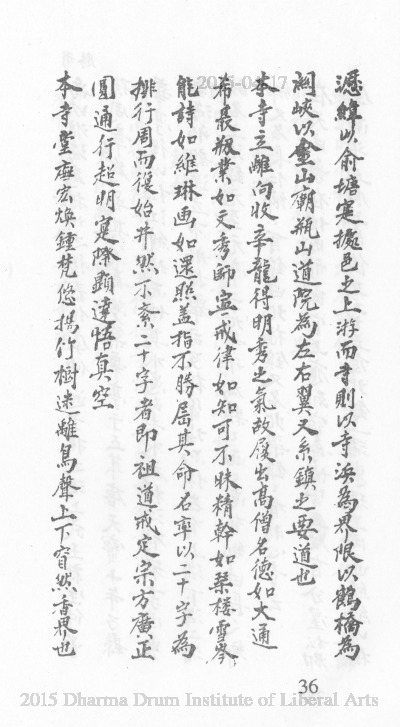 瀝緯以俞塘寔據邑之上游而書則以寺浜為界限以鶴橋為
闸峽以金山廟瓶山道院為左右翼又系鎮之要道也
本寺立離向收辛龍得明秀之氣故屢出高僧名德如大通
希最叛業如元秀師寔戒律如知可不昧精幹如琹楼雪岑
能詩如維琳画如還照盖指不勝屈其命名率以二十字為
排行周而復始井然不紊二十字者即祖道戒定宗方廣正
圓通行超明寔際顯達悟真空
本寺堂庭宏煥鍾梵悠揚竹樹迷離鳥聲上下窅然香界也
36
2015 Dharma Drum Institute of Liberal Arts